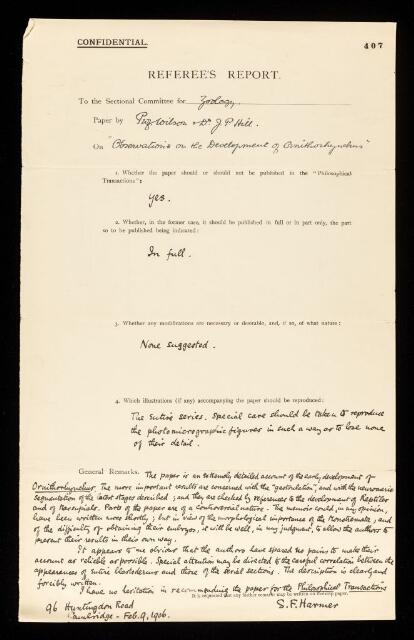 CONFIDENTIAL.
407
REFEREE'S REPORT.
To the Sectional Committee for Zoology.
Paper by Prof. Wilson & Dr J. P. Hill.
On "Observations on the Development of Ornithorhynchus"
1. Whether the paper should or should not be published in the "Philosophical
Transactions":
Yes.
2. Whether, in the former case, it should be published in full or in part only, the part
so to be published being indicated:
In full.
3. Whether any modifications are necessary or desirable, and, if so, of what nature:
None suggested.
4. Which illustrations (if any) accompanying the paper should be reproduced:
The entire series. Special care should be taken to reproduce
the photomicrographic figures in such a way as to lose none
of their detail.
General Remarks. The paper is an extremely detailed account of the early development of
Ornithorhynchus. The more important results are concerned with the "gastrulation", and with the neuromeric
segmentation of the later stages described; and they are checked by references to the development of Reptiles
and of Marsupials. Parts of the paper are of a controversial nature. The memoir could, in my opinion,
have been written more shortly; but in view of the morphological importance of the Monotremata, and
of the difficulty of obtaining their embryos, it will be well, in my judgment, to allow the authors to
present their results in their own way.
It appears to me obvious that the authors have spared no pains to make their
account as reliable as possible. Special attention may be directed to the careful correlation between the
appearances of entire blastoderms and those of the serial sections. The description is clearly and
forcibly written.
I have no hesitation in recommending the paper for the Philosophical Transactions
It is requested that any further remarks may be written on the other page.
96 Huntingdon Road
S. F. Harmer
Cambridge - Feb. 9, 1906.